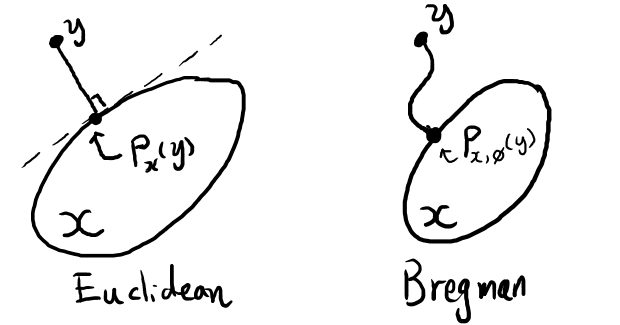 y
P_x(y)
x
Euclidean
y
P_{x,φ}(y)
x
Bregman